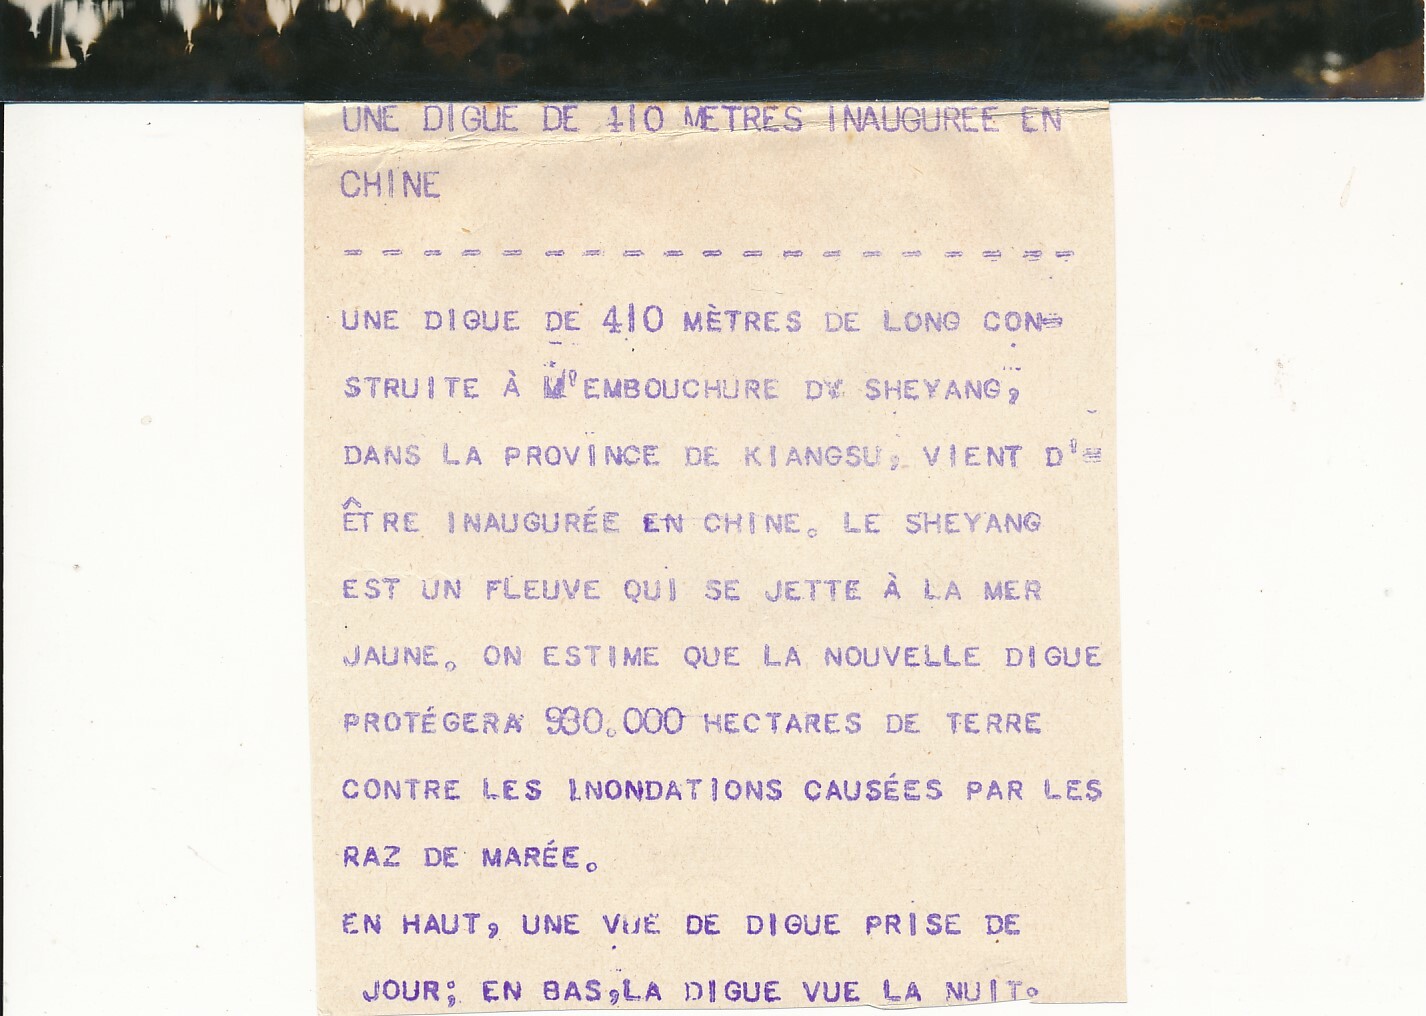 UNE DIGUE DE 410 METRES INAUGUREE EN
CHINE
= = = = = = = = = = = = = = = = = = =
UNE DIGUE DE 410 MÈTRES DE LONG CON=
STRUITE À L'EMBOUCHURE DU SHEYANG,
DANS LA PROVINCE DE KIANGSU, VIENT D'=
ÊTRE INAUGURÉE EN CHINE. LE SHEYANG
EST UN FLEUVE QUI SE JETTE À LA MER
JAUNE. ON ESTIME QUE LA NOUVELLE DIGUE
PROTÉGERA 930.000 HECTARES DE TERRE
CONTRE LES INONDATIONS CAUSÉES PAR LES
RAZ DE MARÉE.
EN HAUT, UNE VUE DE DIGUE PRISE DE
JOUR; EN BAS,LA DIGUE VUE LA NUIT.